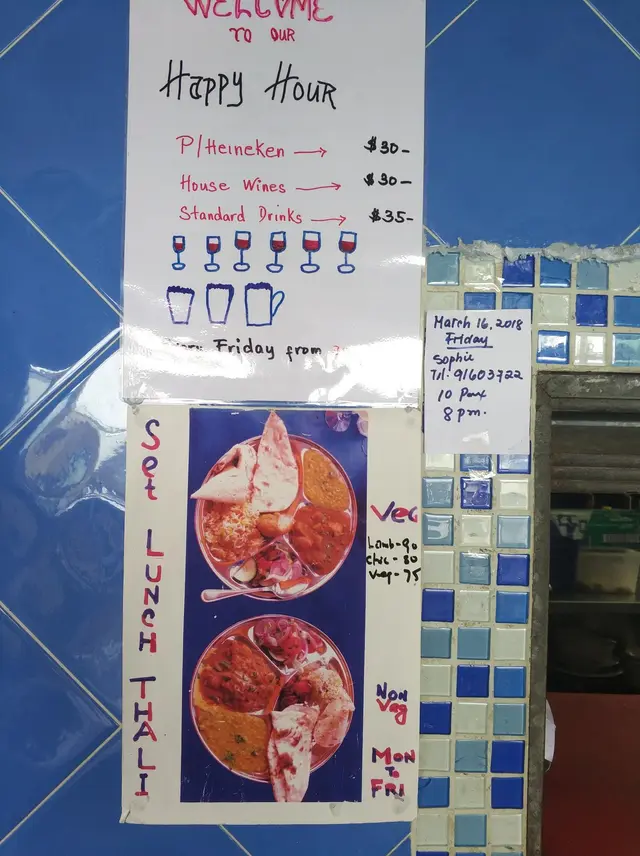 WELCOME
TO OUR
Happy Hour
P/Heineken → $30-
House Wines → $30-
Standard Drinks → $35-
Friday from
March 16, 2018
Friday
Sophie
Tel: 91603722
10 Pax
8 pm.
Set LUNCH THALI
Veg
Lamb-90
Chic-80
Veg-75
NON
Veg
MON
To
FRI